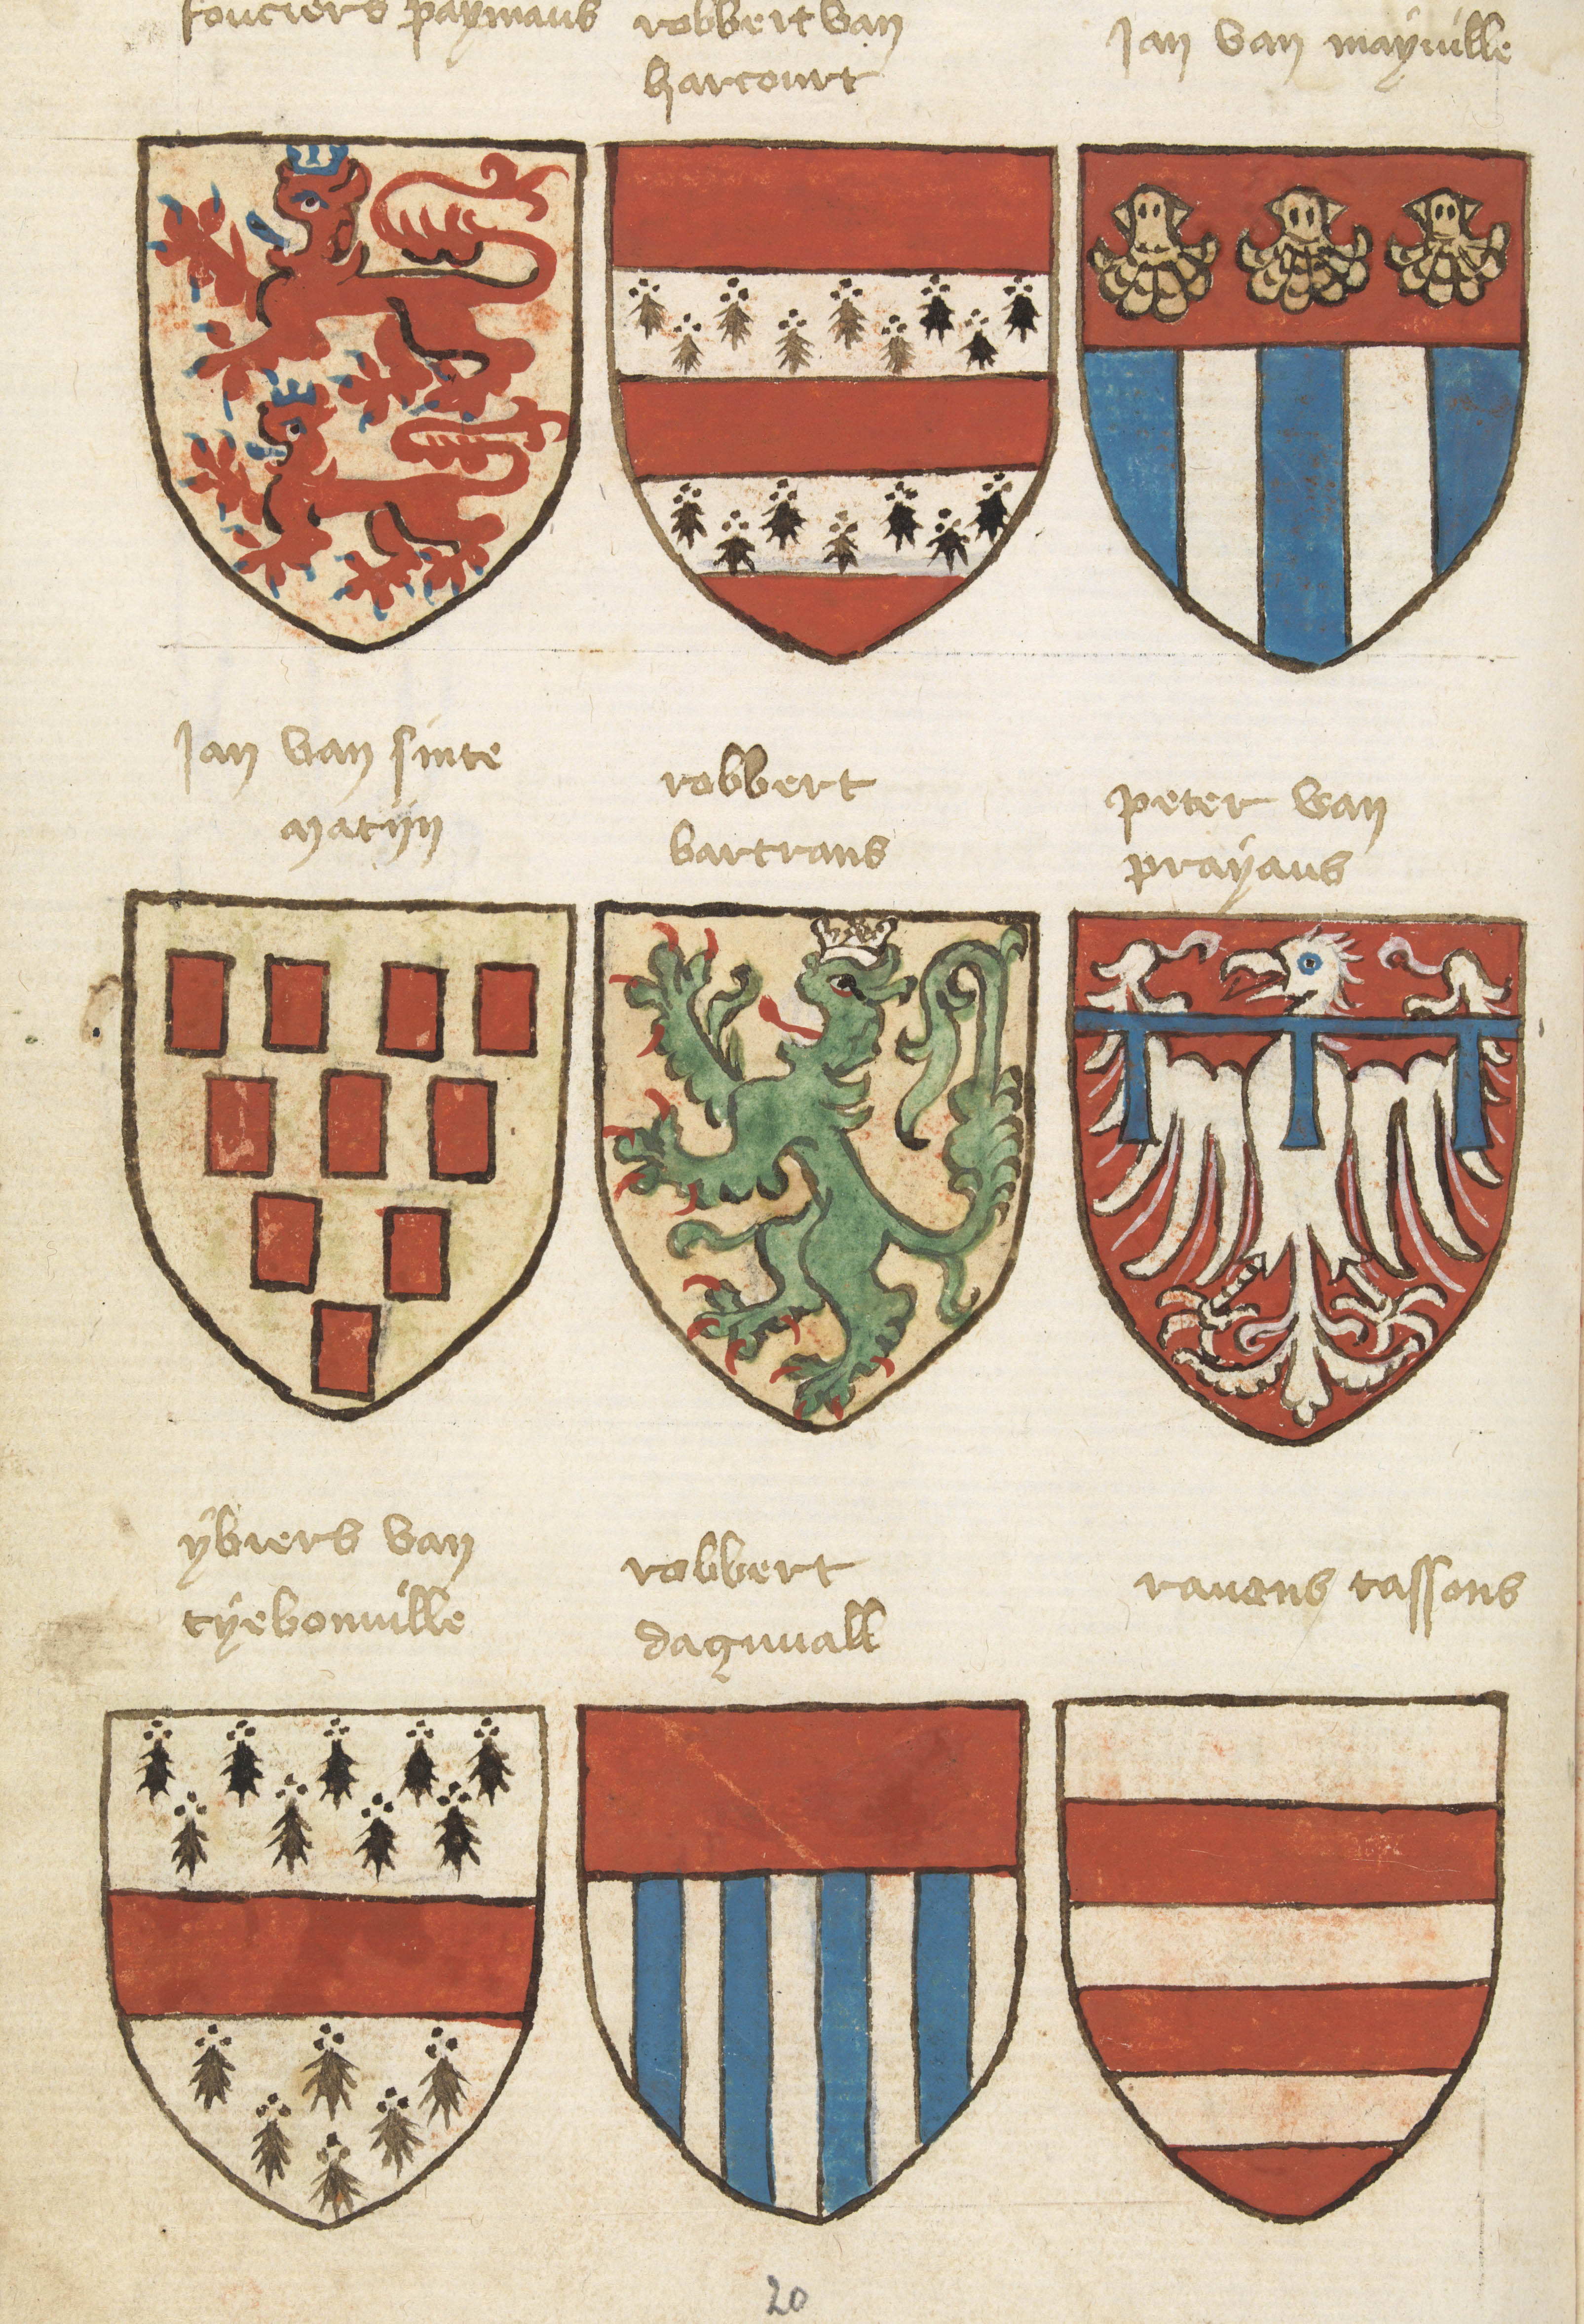 fouciers paymans
robbert van
harcourt
Jan van mayuille
Jan van sinte
matijn
robbert
bartrans
peter van
prayans
ybiers van
tyebonuille
robbert
daguuall
rauons tassons
20